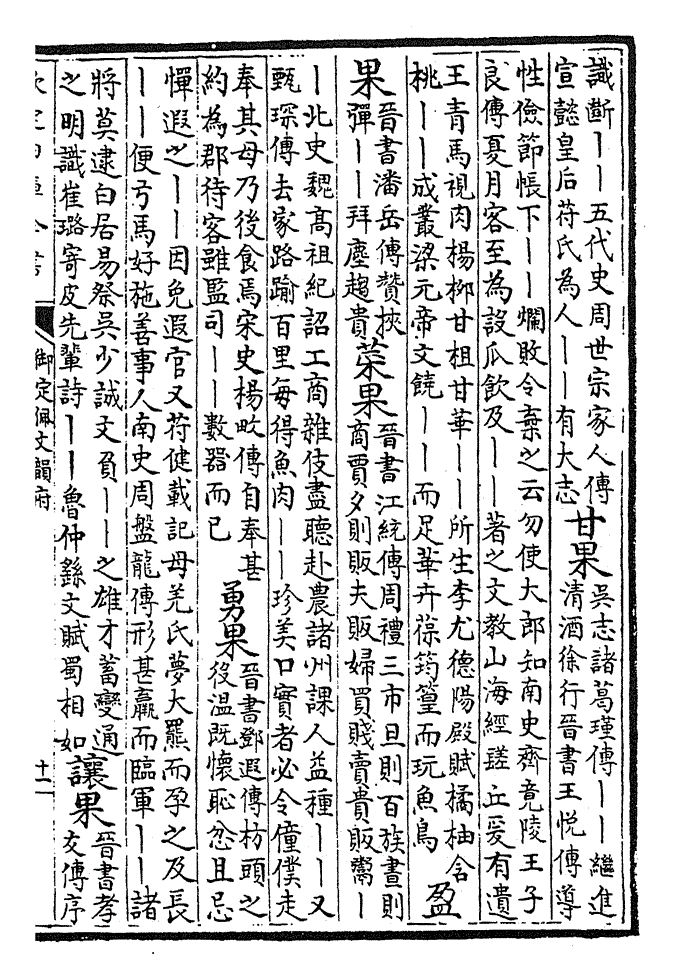 識斷丨丨五代史周世宗家人傳
宣懿皇后苻氏為人丨丨有大志
甘果
吳志諸葛瑾傳丨丨繼進
清酒徐行晉書王悅傳導
性儉節帳下丨丨爛敗令棄之云勿使大郎知南史齊竟陵王子
良傳夏月客至為設瓜飲及丨丨著之文教山海經䃁丘爰有遺
王青馬視肉楊柳甘柤甘華丨丨所生李尤德陽殿賦橘柚含
桃丨丨成叢梁元帝文饒丨丨而足蕐卉葆筠篁而玩魚鳥
盈
果
晉書潘岳傳贊挾
彈丨丨拜塵趨貴
菜果
晉書江統傳周禮三市旦則百族晝則
商賈夕則販夫販婦買賤賣貴販鬻丨
丨北史魏高祖紀詔工商雜伎盡聽赴農諸州課人益種丨丨又
甄琛傳去家路踰百里每得魚肉丨丨珍美口實者必令僮僕走
奉其母乃後食焉宋史楊畋傳自奉甚
約為郡待客雖監司丨丨數器而已
勇果
晉書鄧遐傳枋頭之
役溫既懷恥忿且忌
憚遐之丨丨因免遐官又苻健載記母羌氏夢大羆而孕之及長
丨丨便弓馬好施善事人南史周盤龍傳形甚羸而臨軍丨丨諸
將莫逮白居易祭吳少誠文負丨丨之雄才蓄變通
之明識崔璐寄皮先輩詩丨丨魯仲䥥文賦蜀相如
讓果
晉書孝
友傳序
欽定四庫全書
御定佩文韻府
十一